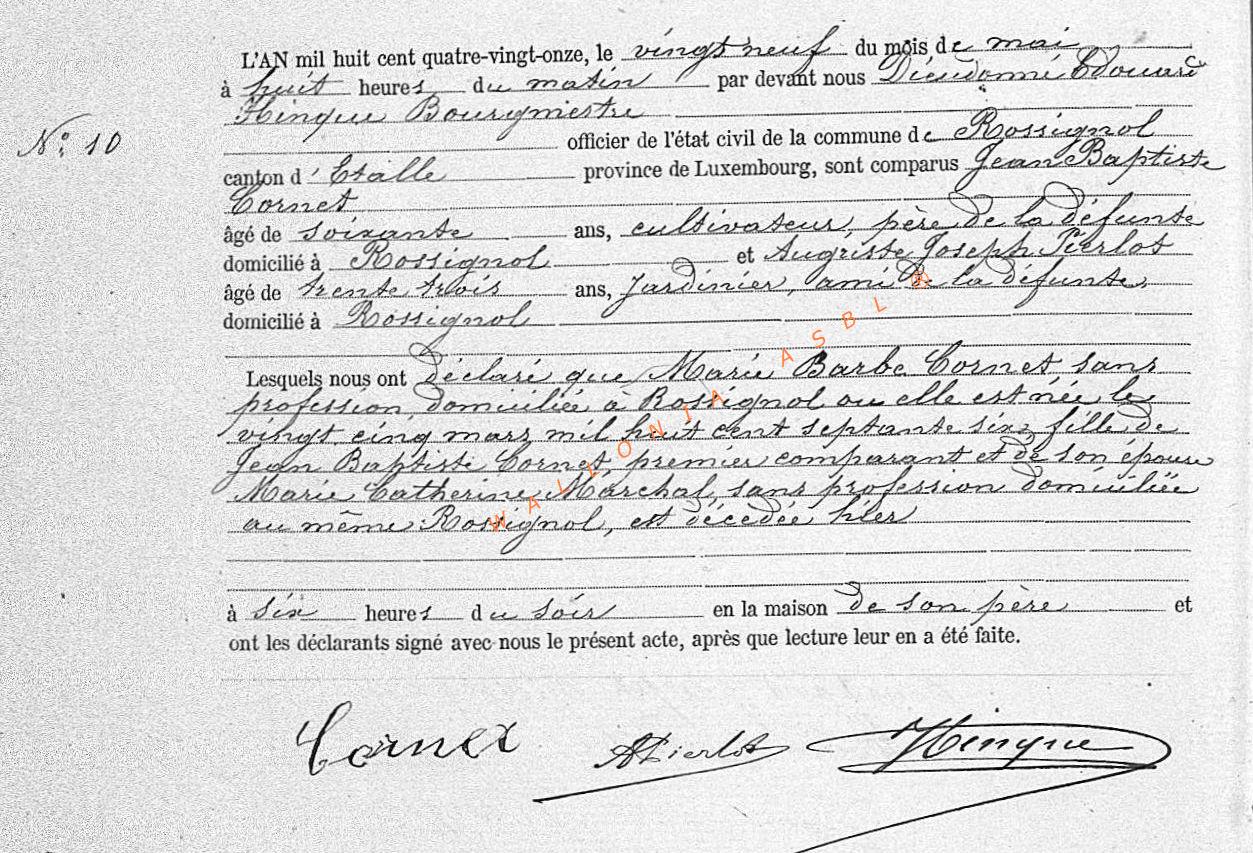 L'AN mil huit cent quatre-vingt-onze, le vingt neuf du mois de mai
à huit heures du matin par devant nous Dieudonné Edouard
Hinque Bourgmestre
N° 10
officier de l'état civil de la commune de Rossignol
canton d'Etalle province de Luxembourg, sont comparus Jean Baptiste
Cornet
âgé de soixante ans, cultivateur, père de la défunte
domicilié à Rossignol et Auguste Joseph Pierlot
âgé de trente trois ans, Jardinier, ami de la défunte,
domicilié à Rossignol
Lesquels nous ont déclaré que Marie Barbe Cornet sans
profession, domiciliée à Rossignol ou elle est née le
vingt cinq mars mil huit cent septante six, fille de
Jean Baptiste Cornet, premier comparant et de son épouse
Marie Catherine Marchal, sans profession domiciliée
au même Rossignol, est décédée hier
à six heures du soir en la maison de son père et
ont les déclarants signé avec nous le présent acte, après que lecture leur en a été faite.
Cornet APierlot Hinque
WALLONIA ASBL ®